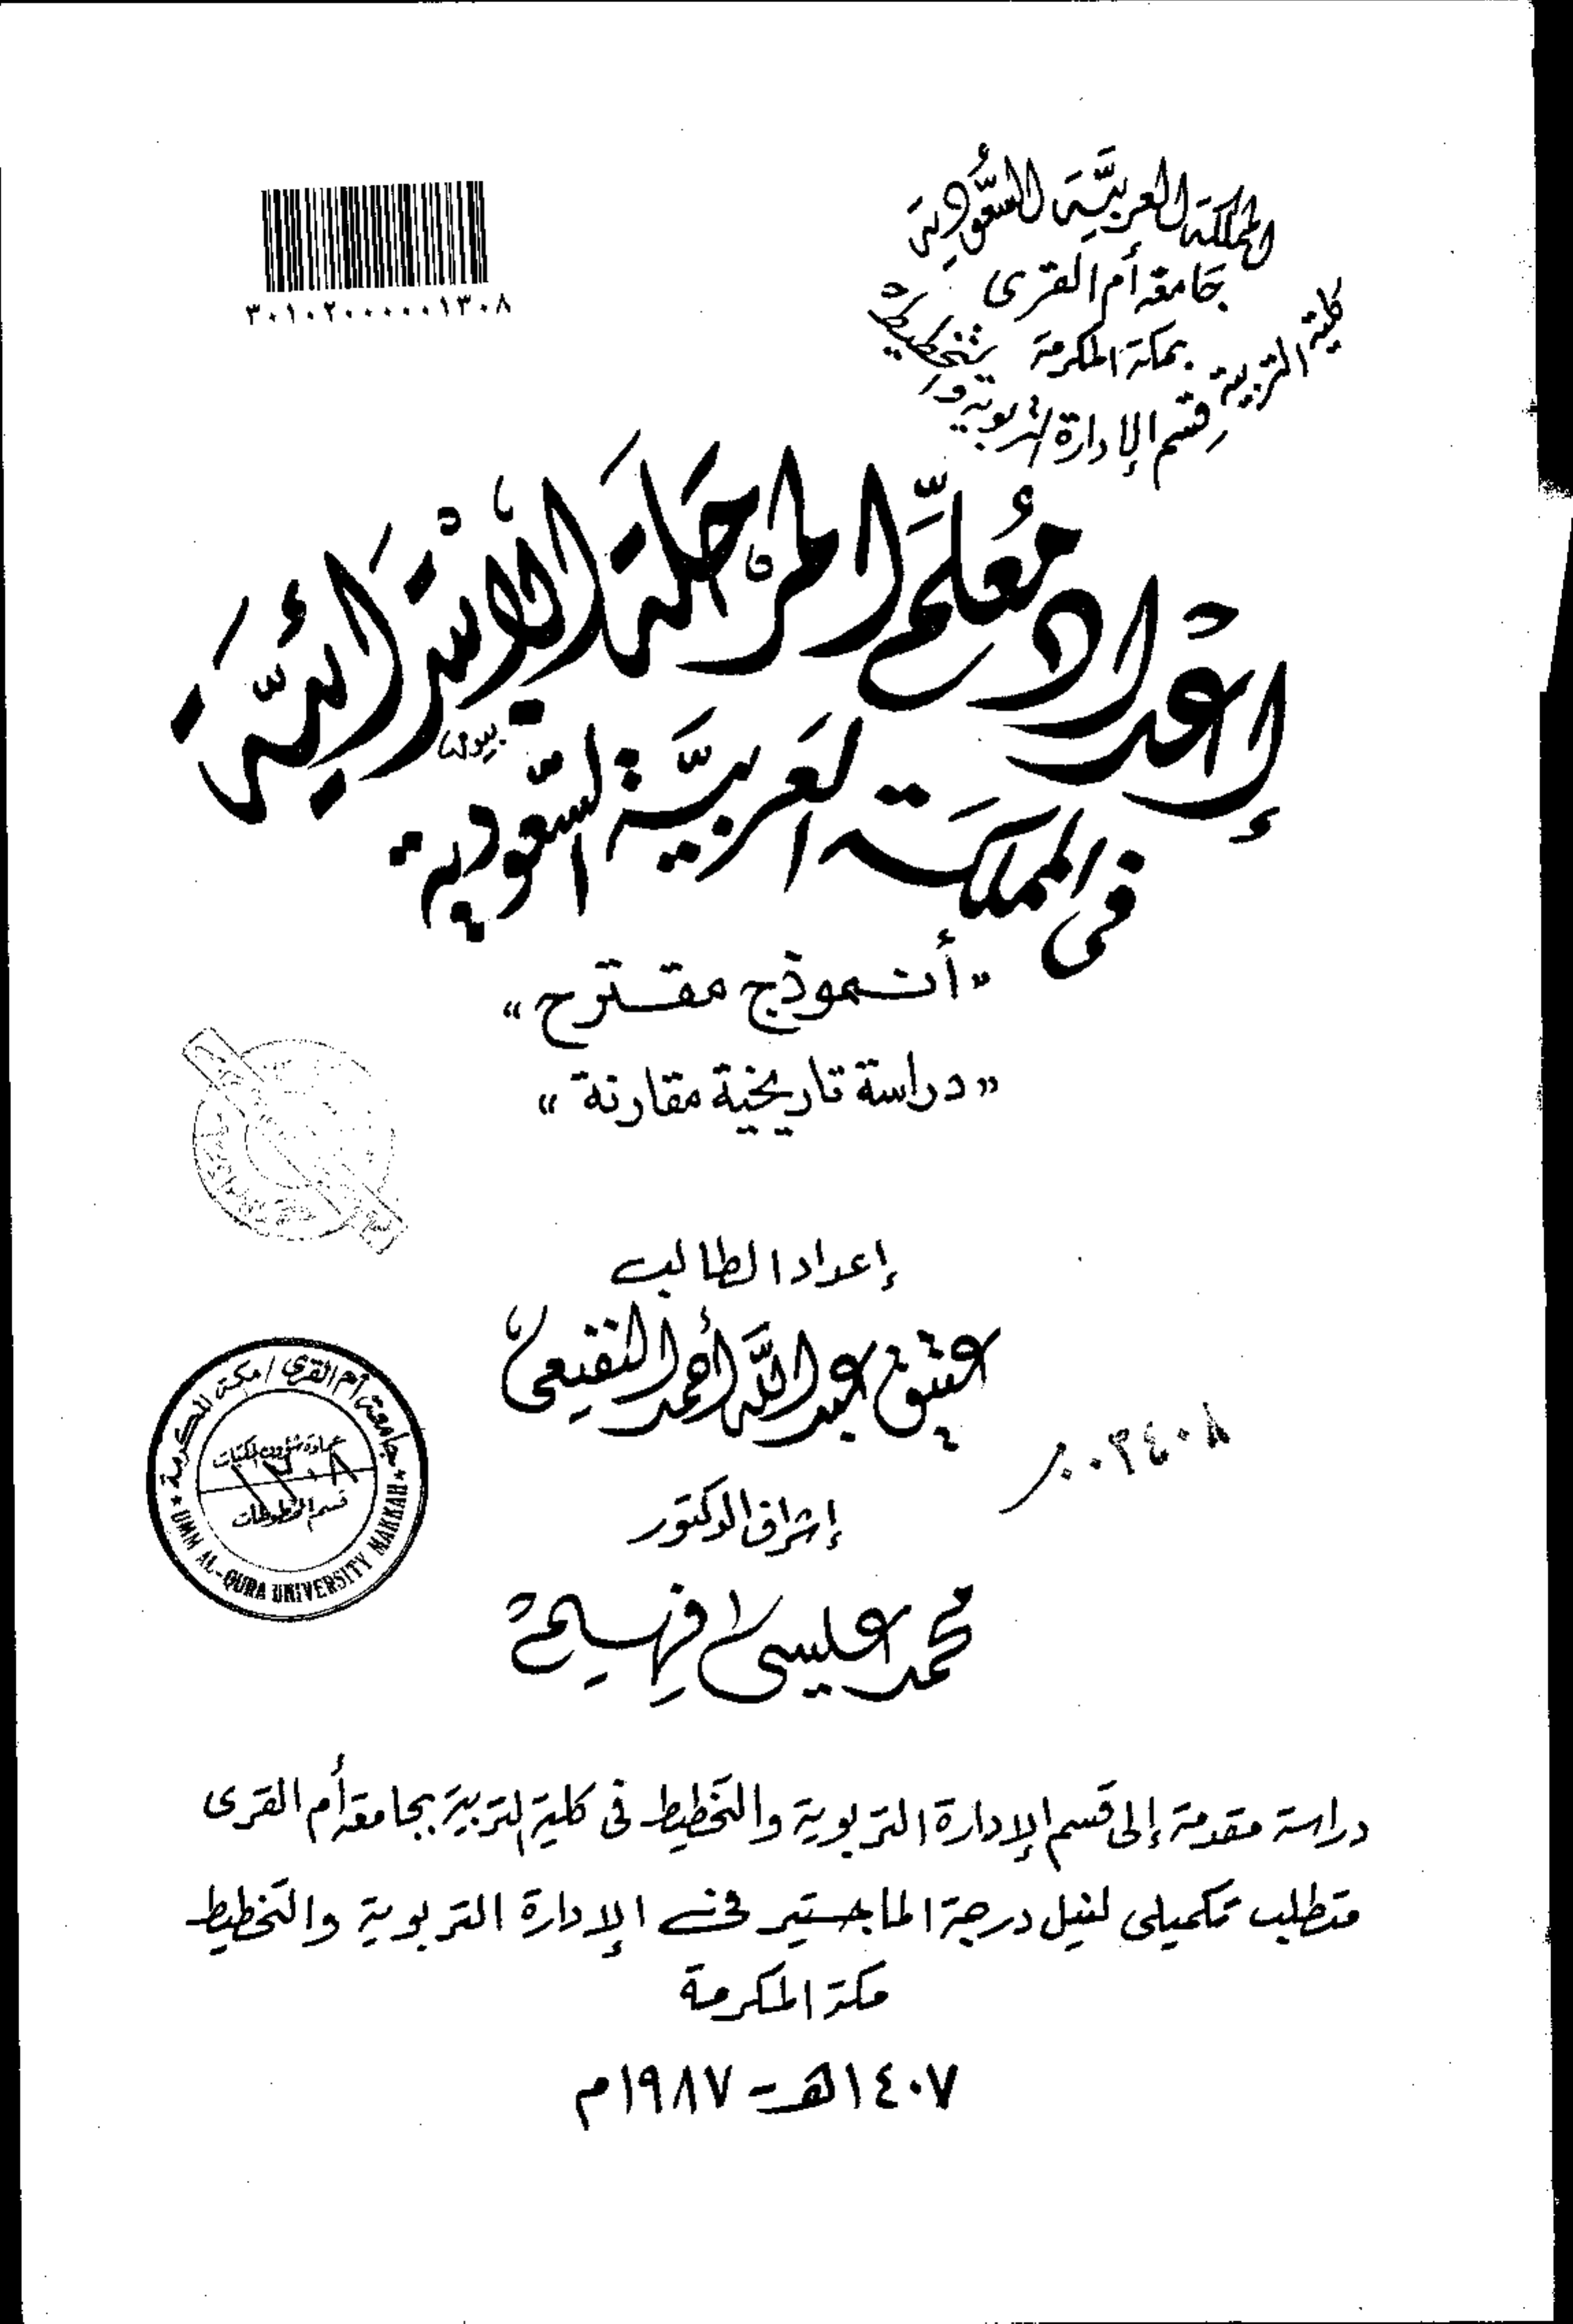 المملكة العربية السعودية
جامعة أم القرى
بمكة المكرمة
كلية التربية
قسم الإدارة التربوية والتخطيط
٣٠١٠٢٠٠٠٠٠٠١٣٠٨
إعداد معلم المرحلة الابتدائية
في المملكة العربية السعودية
"أنموذج مقترح"
"دراسة تاريخية مقارنة"
إعداد الطالب
عتيق عبد الله أحمد النقيعي
إشراف الدكتور
محمد عيسى فهيم
جامعة أم القرى / مكة المكرمة
عمادة شؤون المكتبات
قسم المخطوطات
UMM AL-QURA UNIVERSITY MAKKAH
دراسة مقدمة إلى قسم الإدارة التربوية والتخطيط في كلية التربية بجامعة أم القرى
متطلب تكميلي لنيل درجة الماجستير في الإدارة التربوية والتخطيط
مكة المكرمة
١٤٠٧هـ - ١٩٨٧م